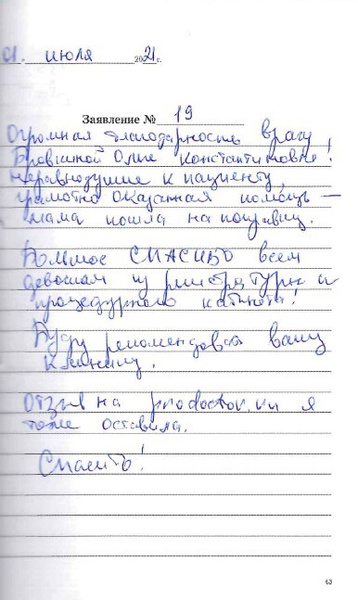 01. июля 2021 г.
Заявление № 19
Огромная благодарность врачу
Ольге Константиновне!
Неравнодушие к пациенту,
грамотно оказанная помощь –
мама пошла на поправку.
Большое СПАСИБО всем
девочкам из регистратуры и
процедурного кабинета!
Буду рекомендовать вашу
клинику.
Отзыв на prodoctorov.ru я
тоже оставила.
Спасибо!
43